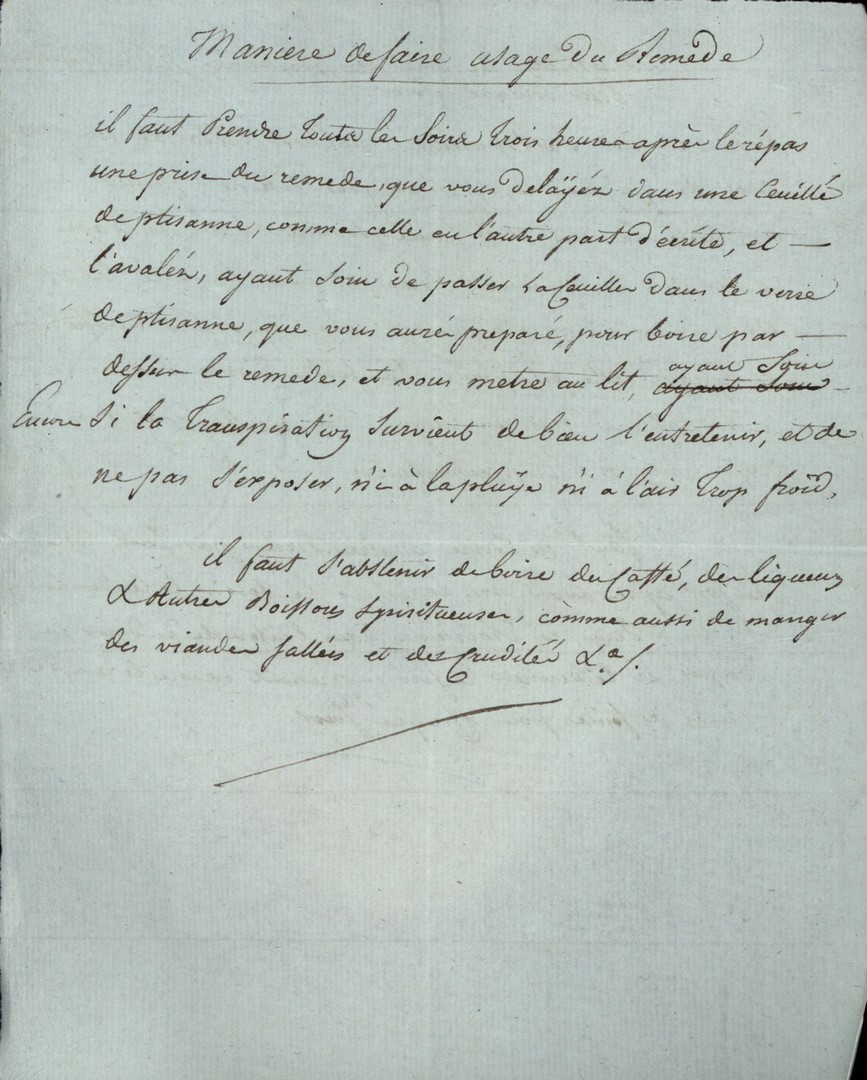 Maniere de faire usage du Remède
il faut Prendre Toutes les Soirs Trois heures après le répas
une prise du remede, que vous delaÿéz dans une Ceuillé
de ptisanne, comme celle en l'autre part d'écrite, et —
l'avaléz, ayant Soin de passer La Ceuiller dans le verre
de ptisanne, que vous auré preparé, pour boire par —
dessus le remede, et vous metre au lit, ayant Soin
ayant Soin
Encore Si la Transpiration Survient de bien l'entretenir, et de
ne pas s'exposer, n'i à la pluÿe n'i à l'air Trop froid,
il faut s'abstenir de boire du Caffé, des liqueurs
& Autres Boissons Spiritueuses, comme aussi de manger
des viandes Sallées et des Crudités &.a/.